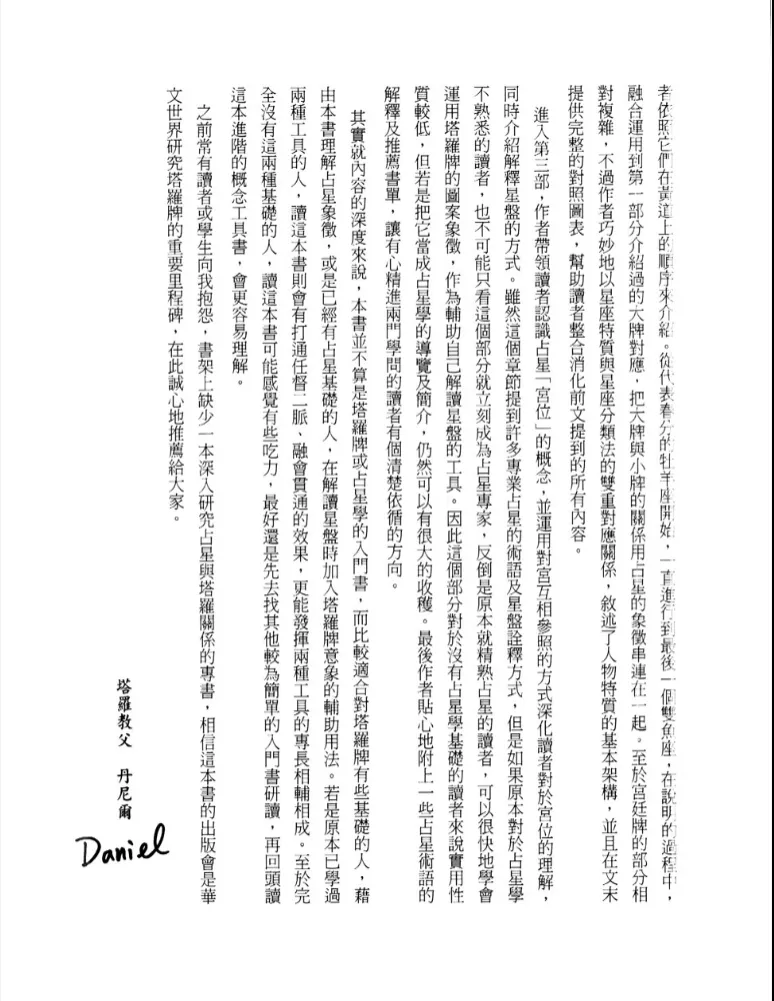 者依照它們在黃道上的順序來介紹。從代表春分的牡羊座開始，一直進行到最後一個雙魚座，在說明的過程中，
融合運用到第一部分介紹過的大牌對應，把大牌與小牌的關係用占星的象徵串連在一起。至於宮廷牌的部分相
對複雜，不過作者巧妙地以星座特質與星座分類法的雙重對應關係，敘述了人物特質的基本架構，並且在文末
提供完整的對照圖表，幫助讀者整合消化前文提到的所有內容。
進入第三部，作者帶領讀者認識占星「宮位」的概念，並運用對宮互相參照的方式深化讀者對於宮位的理解，
同時介紹解釋星盤的方式。雖然這個章節提到許多專業占星的術語及星盤詮釋方式，但是如果原本對於占星學
不熟悉的讀者，也不可能只看這個部分就立刻成為占星專家，反倒是原本就精熟占星的讀者，可以很快地學會
運用塔羅牌的圖案象徵，作為輔助自己解讀星盤的工具。因此這個部分對於沒有占星學基礎的讀者來說實用性
質較低，但若是把它當成占星學的導覽及簡介，仍然可以有很大的收穫。最後作者貼心地附上一些占星術語的
解釋及推薦書單，讓有心精進兩門學問的讀者有個清楚依循的方向。
其實就內容的深度來說，本書並不算是塔羅牌或占星學的入門書，而比較適合對塔羅牌有些基礎的人，藉
由本書理解占星象徵，或是已經有占星基礎的人，在解讀星盤時加入塔羅牌意象的輔助用法。若是原本已學過
兩種工具的人，讀這本書則會有打通任督二脈、融會貫通的效果，更能發揮兩種工具的專長相輔相成。至於完
全沒有這兩種基礎的人，讀這本書可能感覺有些吃力，最好還是先去找其他較為簡單的入門書研讀，再回頭讀
這本進階的概念工具書，會更容易理解。
之前常有讀者或學生向我抱怨，書架上缺少一本深入研究占星與塔羅關係的專書，相信這本書的出版會是華
文世界研究塔羅牌的重要里程碑，在此誠心地推薦給大家。
塔羅教父　丹尼爾
Daniel